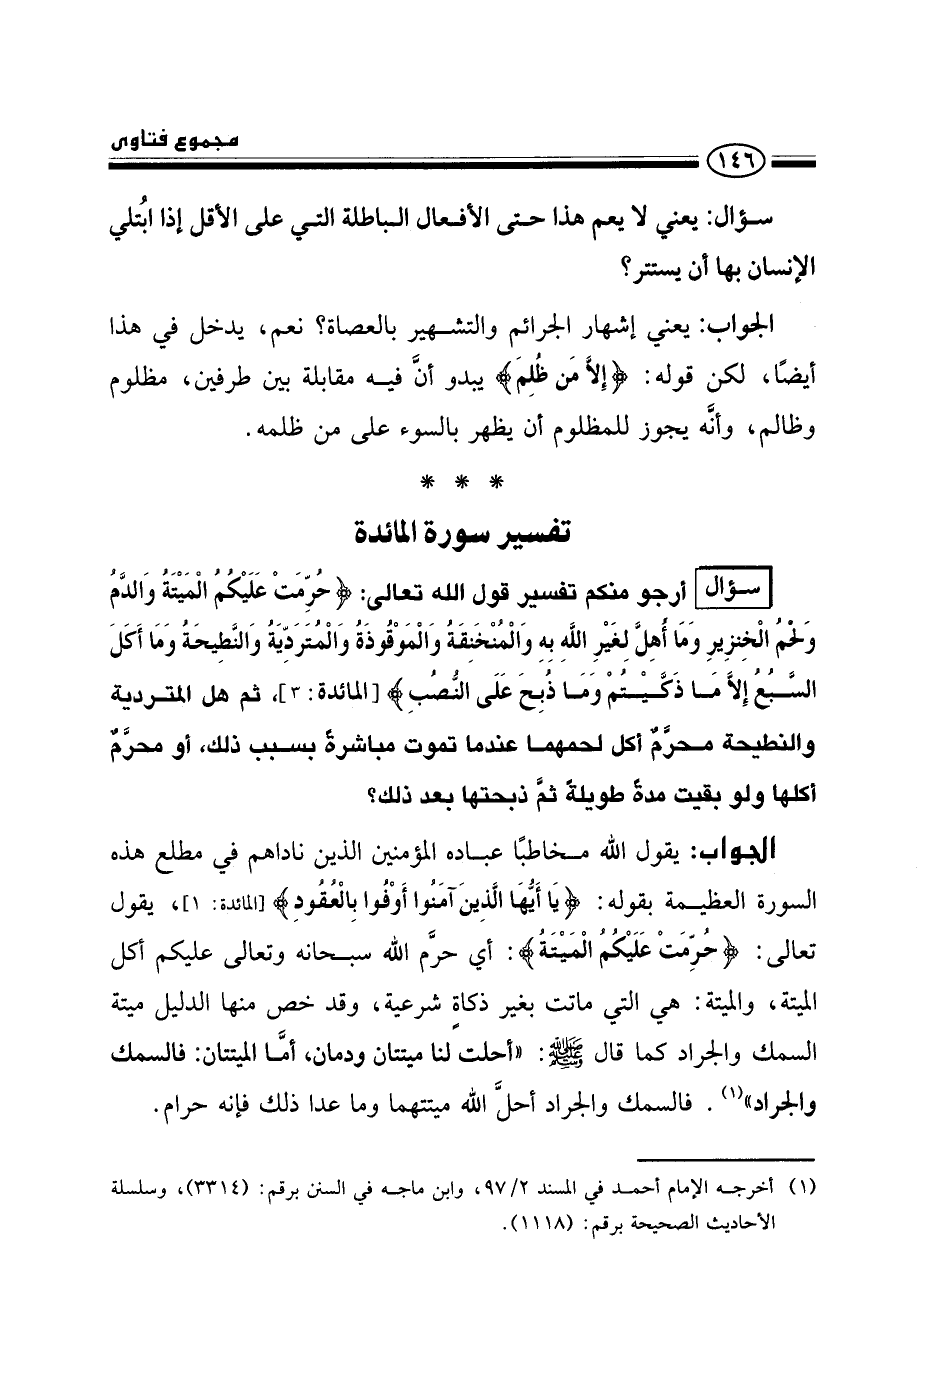 مجموع فتاوى
١٤٦
سؤال: يعني لا يعم هذا حتى الأفعال الباطلة التي على الأقل إذا ابتُلي
الإنسان بها أن يستتر؟
الجواب: يعني إشهار الجرائم والتشهير بالعصاة؟ نعم، يدخل في هذا
أيضًا، لكن قوله: ﴿إِلاَّ مَن ظُلِمَ﴾ يبدو أنَّ فيه مقابلة بين طرفين، مظلوم
وظالم، وأنَّه يجوز للمظلوم أن يظهر بالسوء على من ظلمه.
* * *
تفسير سورة المائدة
سؤال أرجو منكم تفسير قول الله تعالى: ﴿حُرِّمَتْ عَلَيْكُمُ الْمَيْتَةُ وَالدَّمُ
وَلَحْمُ الْخِنزِيرِ وَمَا أُهِلَّ لِغَيْرِ اللَّهِ بِهِ وَالْمُنْخَنِقَةُ وَالْمَوْقُوذَةُ وَالْمُتَرَدِّيَةُ وَالنَّطِيحَةُ وَمَا أَكَلَ
السَّبُعُ إِلاَّ مَا ذَكَّيْتُمْ وَمَا ذُبِحَ عَلَى النُّصُبِ﴾ [المائدة: ٣]، ثم هل المتردية
والنطيحة محرَّمٌ أكل لحمهما عندما تموت مباشرةً بسبب ذلك، أو محرَّمٌ
أكلها ولو بقيت مدةً طويلةً ثمَّ ذبحتها بعد ذلك؟
الجواب: يقول الله مخاطبًا عباده المؤمنين الذين ناداهم في مطلع هذه
السورة العظيمة بقوله: ﴿يَا أَيُّهَا الَّذِينَ آمَنُوا أَوْفُوا بِالْعُقُودِ﴾ [المائدة: ١]، يقول
تعالى: ﴿حُرِّمَتْ عَلَيْكُمُ الْمَيْتَةُ﴾: أي حرَّم الله سبحانه وتعالى عليكم أكل
الميتة، والميتة: هي التي ماتت بغير ذكاةٍ شرعية، وقد خص منها الدليل ميتة
السمك والجراد كما قال ﷺ: «أحلت لنا ميتتان ودمان، أمَّا الميتتان: فالسمك
والجراد»(١). فالسمك والجراد أحلَّ الله ميتتهما وما عدا ذلك فإنه حرام.
(١) أخرجه الإمام أحمد في المسند ٩٧/٢، وابن ماجه في السنن برقم: (٣٣١٤)، وسلسلة
الأحاديث الصحيحة برقم: (١١١٨).